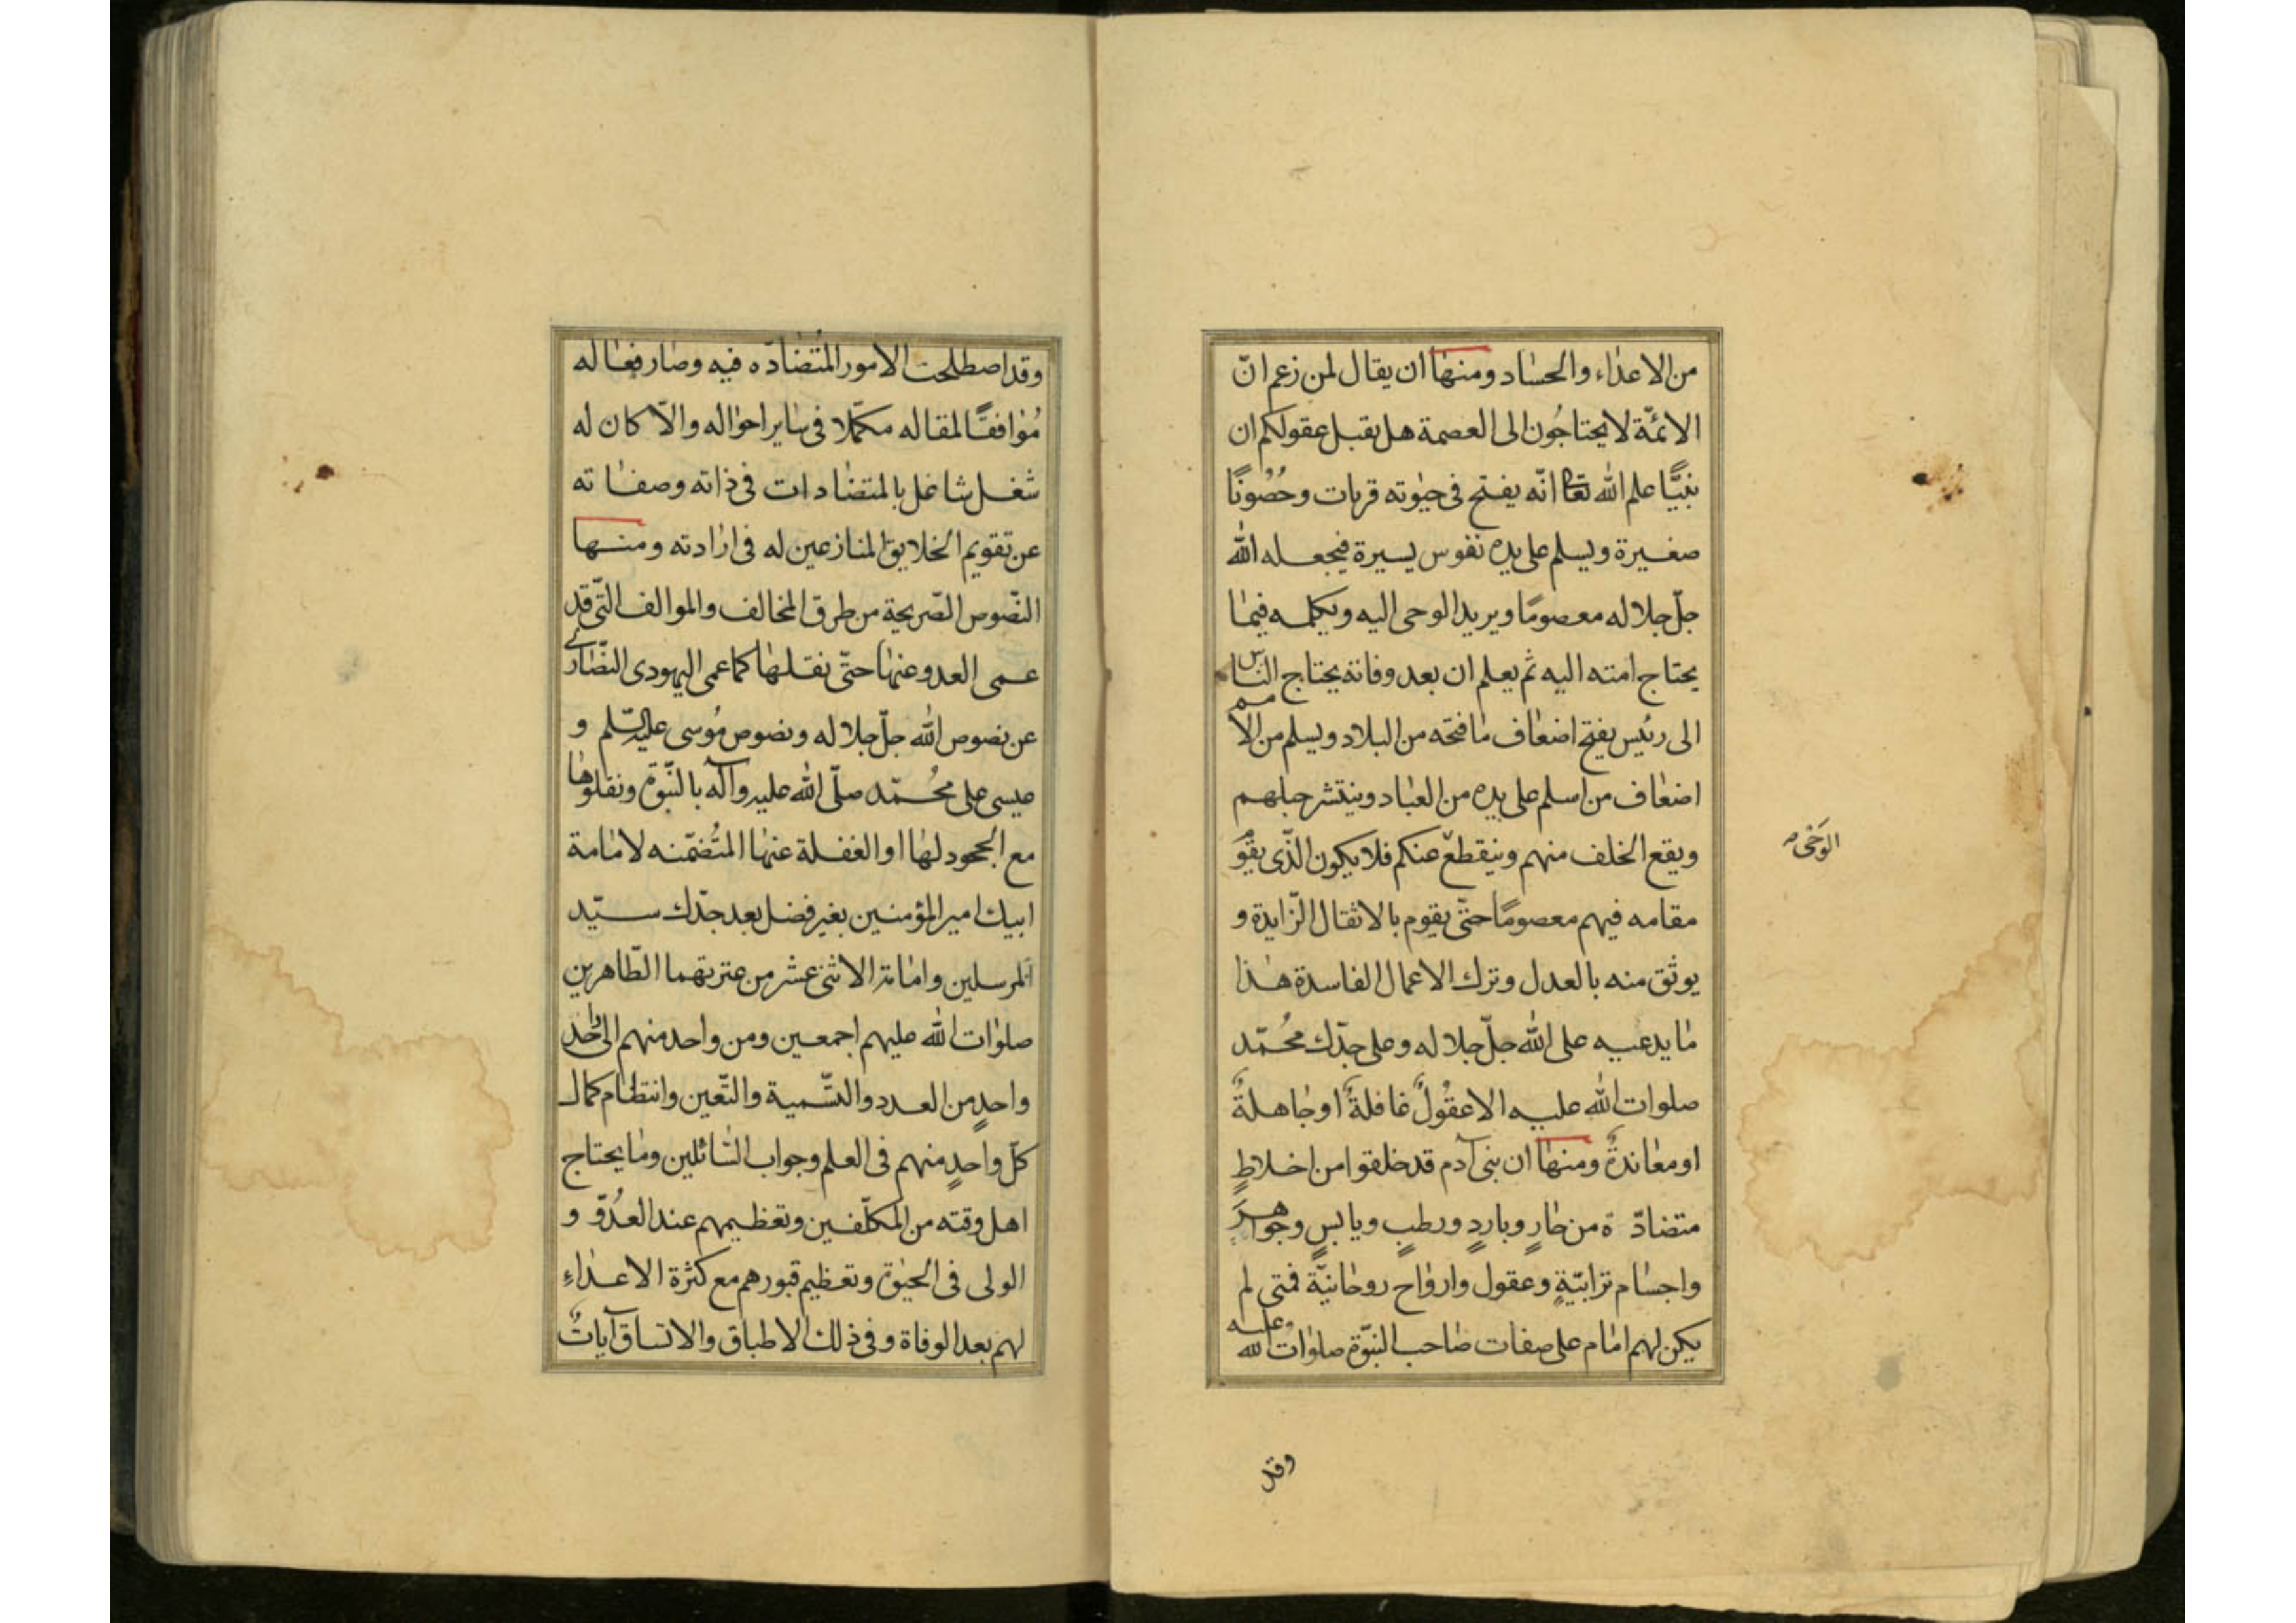 من الاعداء والحساد ومنها ان يقال لمن زعم انّ
الائمّة لا يحتاجُون الى العصمة هل يقبل عقولكم ان
نبيًّا علم الله تعا انّه يفتح في حيٰوته قريات وحُصُونًا
صغيرة ويسلم على يده نفوس يسيرة فيجعله الله
جلّ جلاله معصومًا ويريد الوحى اليه ويكلمه فيما
يحتاج امته اليه ثم يعلم ان بعد وفاته يحتاج الناس
الى رئيس يفتح اضعاف ما فتحه من البلاد ويسلم من الامم
اضعاف من اسلم على يده من العباد وينتشر حبلهم
ويقع الخلف منهم وينقطع عنكم فلا يكون الّذى يقوم
الوَحْىُ
مقامه فيهم معصومًا حتّى يقوم بالاثقال الزّايدة و
يوثق منه بالعدل وترك الاعمال الفاسدة هذا
ما يدعيه على الله جلّ جلاله وعلى جدّك محُمّد
صلوات الله عليه الا عقُولٌ غافلةٌ او جاهلةٌ
او معاندةٌ ومنها ان بنى آدم قد خلقوا من اخلاطٍ
متضادّة من حارٍ وباردٍ ورطبٍ ويابسٍ وجواهر
واجسام ترابيّةٍ وعقول وارواح روحانيّة فمتى لم
يكن لهم امام على صفات صاحب النبّوة صلوات الله وعليه
وقد
وقد اصطلحت الامور المتضادّه فيه وصار فعاله
مُوافقًا لمقاله مكمّلا في ساير احواله والّا كان له
شغل شاغل بالمتضادات في ذاته وصفاته
عن تقويم الخلايق المنازعين له في ارادته ومنها
النّصوص الصّريحة من طرق المخالف والموالف التّى قد
عمى العدو عنها حتّى نقلها كما عمى اليهودى النصّارى
عن نصوص الله جلّ جلاله ونصوص مُوسى عليه السّلم و
عيسى على محُمّد صلّى الله عليه وآله بالنّبوّة ونقلوها
مع الجحود لها او الغفلة عنها المتُضمّنه لامامة
ابيك امير المؤمنين بغير فضل بعد جدّك سيّد
المرسلين وامامة الاثنى عشر من عترتهما الطّاهرين
صلوات الله عليهم اجمعين ومن واحد منهم الى واحد
واحدٍ من العدد والتّسمية والتّعين وانتظام كمال
كلّ واحدٍ منهم في العلم وجواب السّائلين وما يحتاج
اهل وقته من المكلّفين وتعظيمهم عند العدُوّ و
الولى في الحيٰوة وتعظيم قبورهم مع كثرة الاعداءِ
لهم بعد الوفاة وفى ذلك الاطباق والاتساق آياتٌ